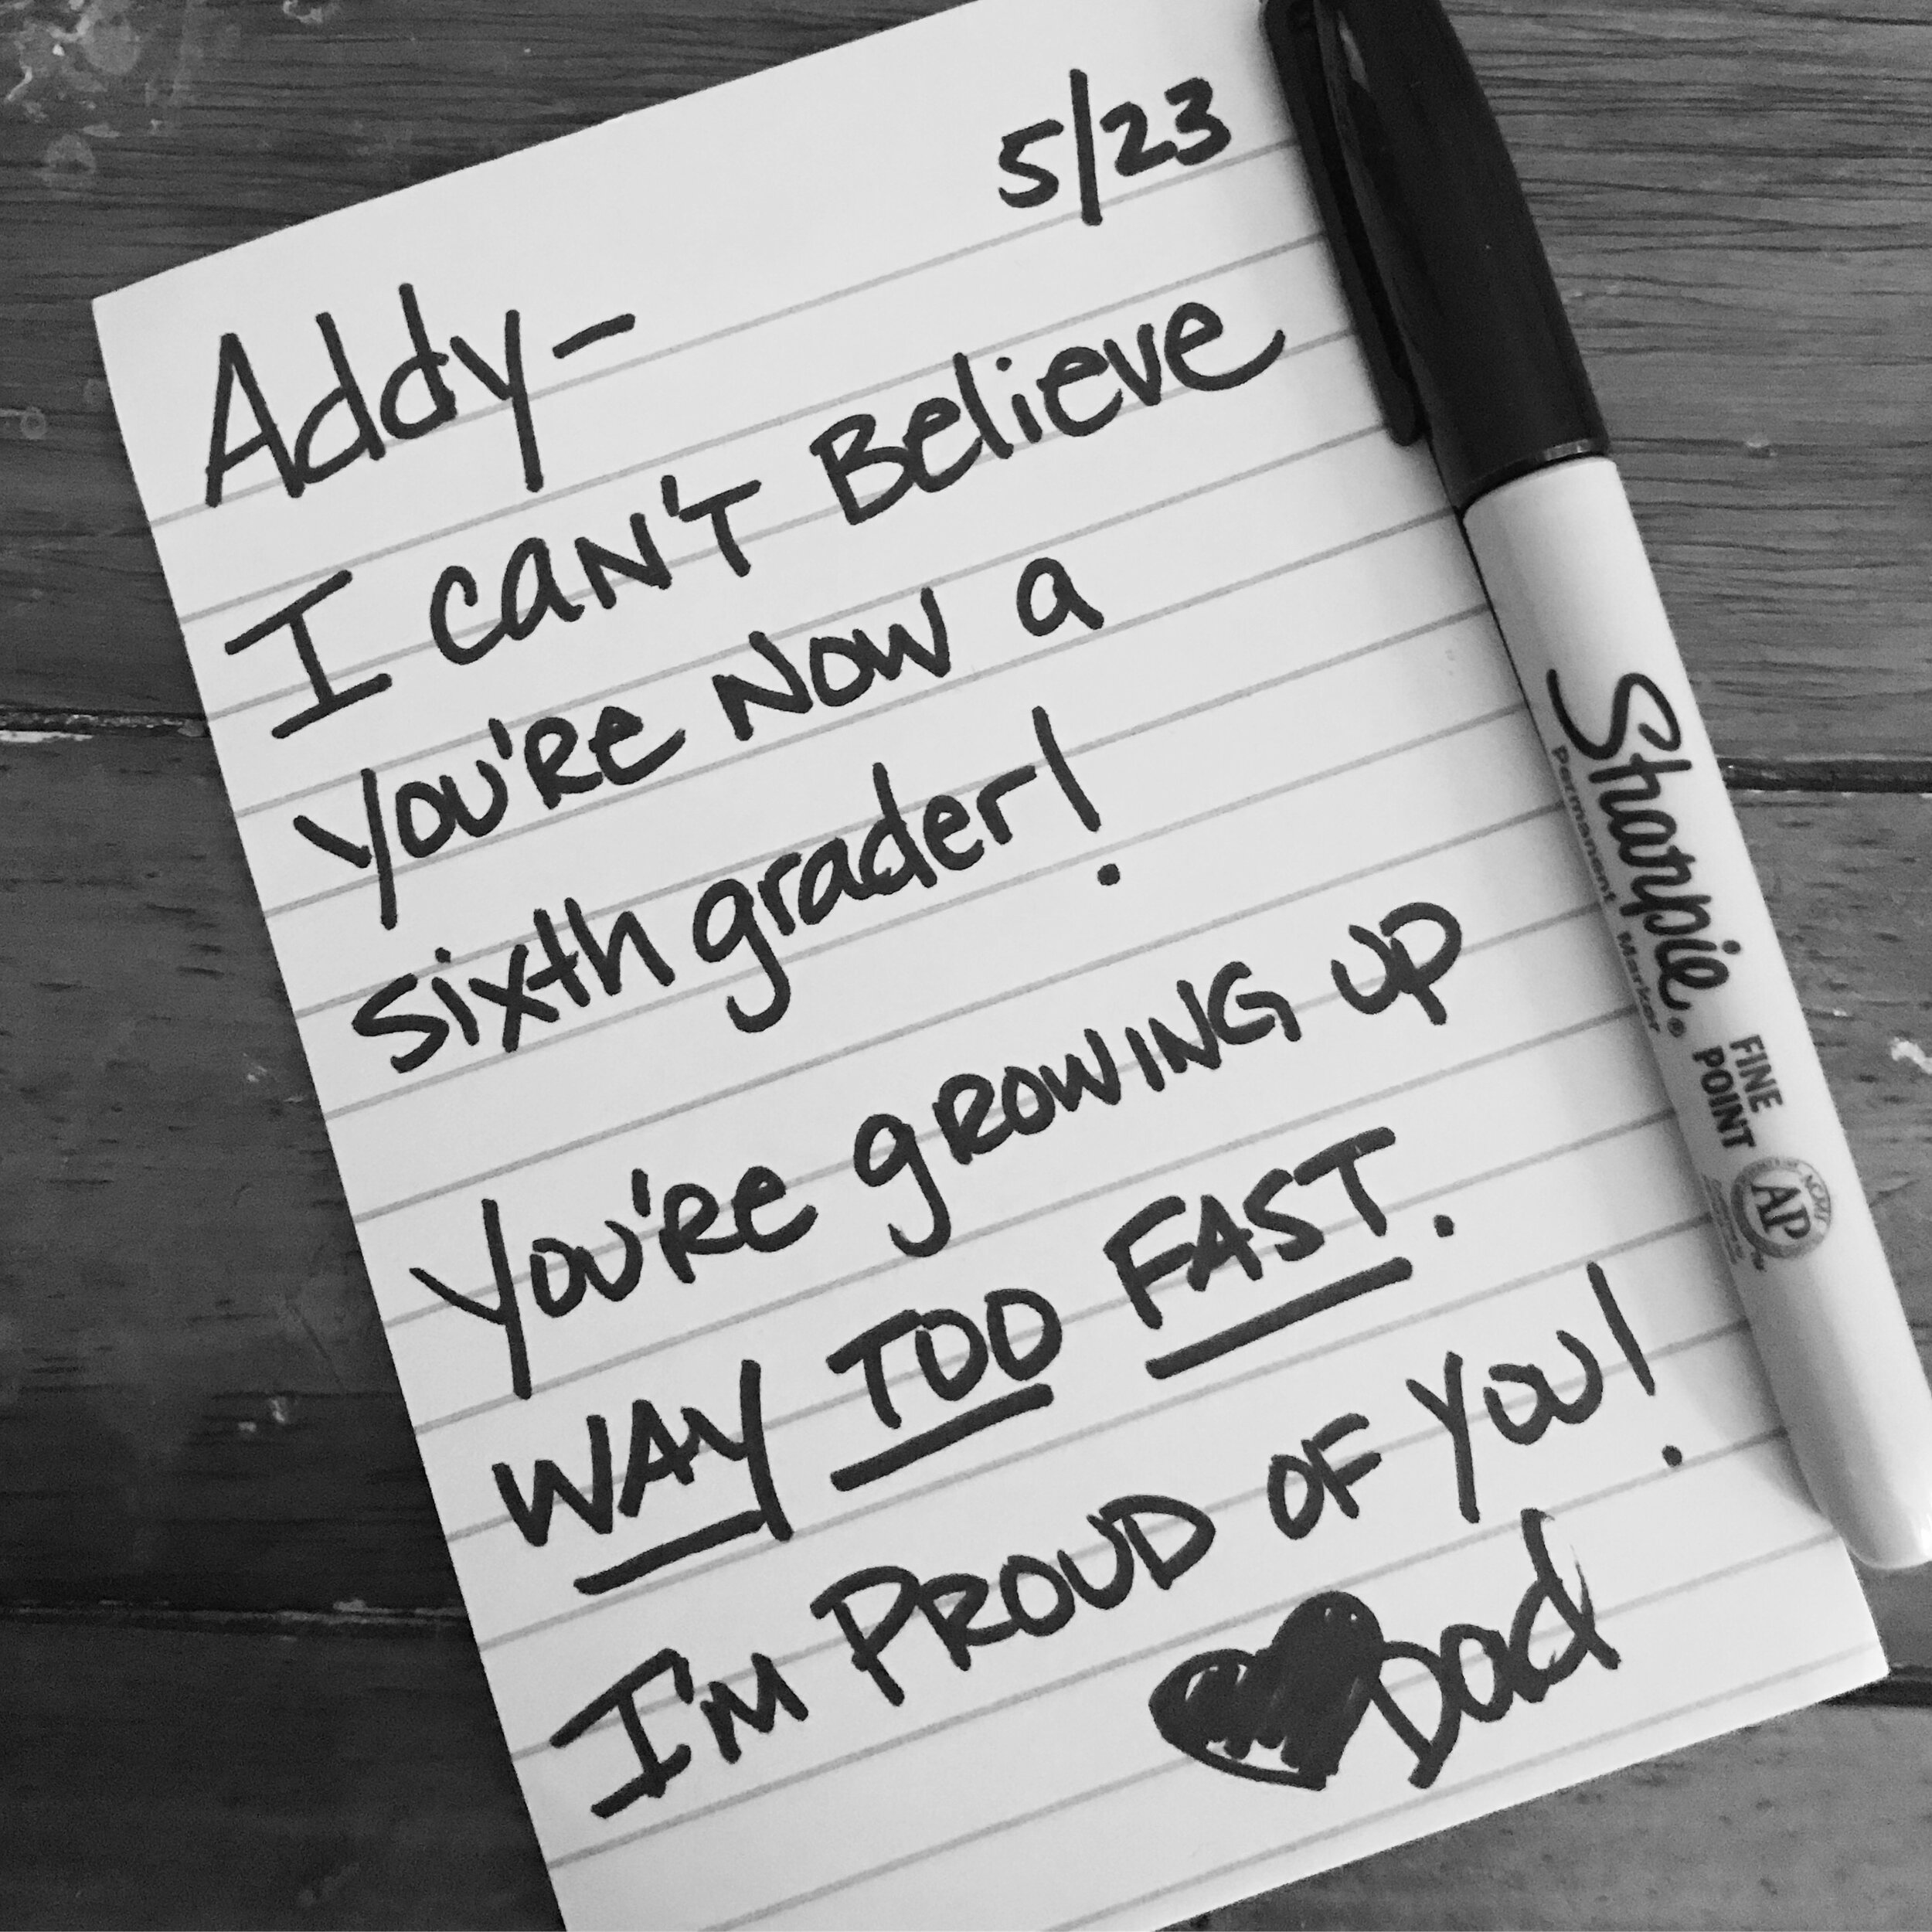 5/23
Addy-
I can't Believe
you're now a
sixth grader!
You're growing up
WAY TOO FAST.
I'm PROUD OF YOU!
♥Dad
Sharpie®
Permanent Marker
FINE
POINT
AP